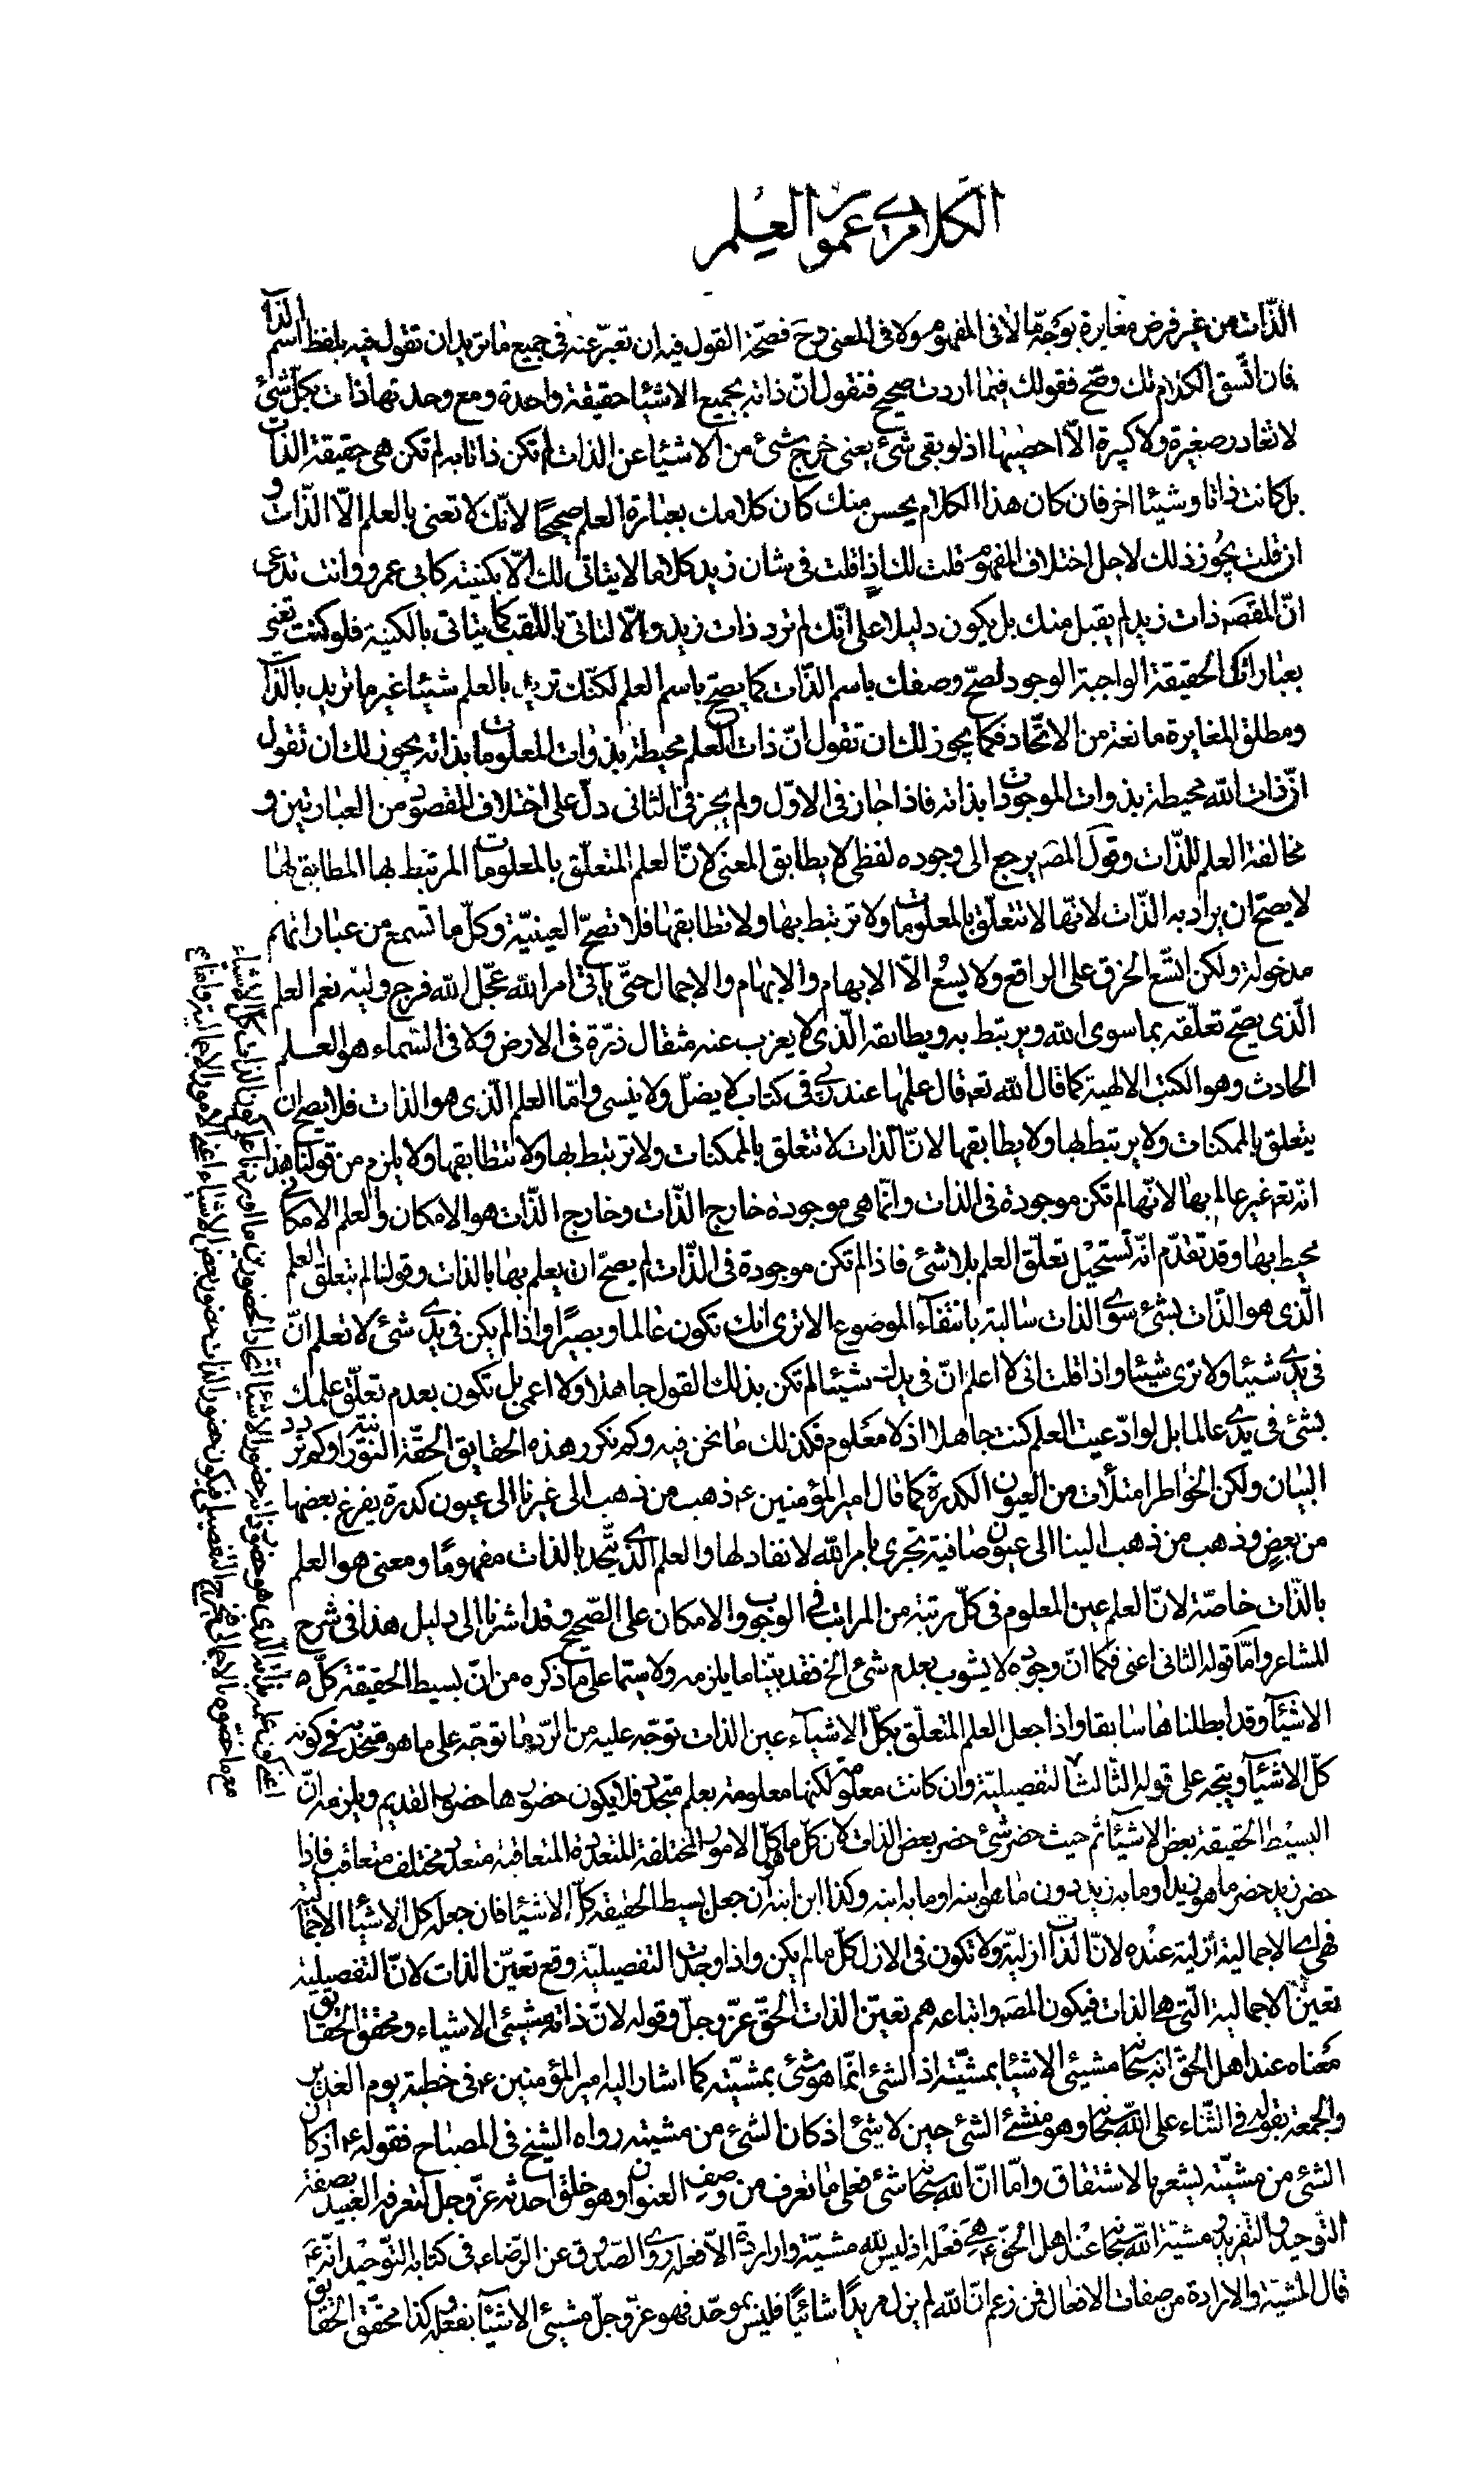 الكلام في عموم العلم
الذّات من غير فرض مغايرة بوجه مّا لا فى المفهوم ولا فى المعنى وح فصحّة القول فيه ان تعبّر عنه فى جميع ما تريد ان تقول فيه بلفظ اسم الذات
فان اتّسق الكلام لك وصّح فقولك فيما اردت صحيح فتقول انّ ذاته بجميع الاشياء حقيقة واحدة ومع وحدتها ذات بكل شئ
لا تغادر صغيرة ولا كبيرة الّا احصيها اذ لو بقى شئ يعنى خرج شئ من الاشياء عن الذات لم تكن ذاتا به لم تكن هى حقيقة الذات
بل كانت ذاتا وشيئا اخر فان كان هذا الكلام يحسن منك كان كلامك بعبارة العلم صحيحًا لانّك لا تعنى بالعلم الّا الذّات و
ان قلت يجُوز ذلك لاجل اختلاف المفهوم قلت لك اذا قلت فى شان زيد كلاما لا يتاتى لك الّا بكنيته كابى عمرو وانت تدعى
انّ المقصَد ذات زيد لم يقبل منك بل يكون دليلا على انّك لم ترد ذات زيد والّا لتاتى باللّقب كما يتاتى بالكنية فلو كنت تعنى
بعباراتك الحقيقة الواجبة الوجود لصحّ وصفك باسم الذّات كما يصحّ باسم العلم لكنّك تريد بالعلم شيئا غير ما تريد بالذّات
ومطلق المغايرة مانعة من الاتّحاد فكما يجوز لك ان تقول انّ ذات العلم محيطة بذوات المعلومات بذاته يجوز لك ان تقول
انّ ذات الله محيطة بذوات الموجودات بذاته فاذا جاز فى الاوّل ولم يجز فى الثانى دلّ على اختلاف المقصود من العبارتين و
مخالفة العلم للذّات وقول المصَ يرجع الى وجوده لفظى لا يطابق المعنى لانّ العلم المتعلّق بالمعلومات المرتبط بها المطابق لها
لا يصحّ ان يراد به الذّات لانّها لا تتعلّق بالمعلومات ولا ترتبط بها ولا تطابقها فلا تصحّ العينيّة وكلّ ما تسمع من عباراتهم
مدخولة ولكن اتّسع الخرق على الراقع ولا يسعُ الّا الايهام والابهام والاجمال حتّى ياتى امر الله عجّل الله فرج وليّه نعم العلم
الّذى يصحّ تعلّقه بما سوى الله ويرتبط به ويطابقه الّذى لا يعزب عنه مثقال ذرّة فى الارض ولا فى السّماء هو العلم
الحادث وهو الكتب الالهية كما قال الله تعَ قال علمها عند ربّى فى كتاب لا يضلّ ولا ينسى وامّا العلم الّذى هو الذات فلا يصح ان
يتعلق بالممكنات ولا يرتبط بها ولا يطابقها لانّ الذات لا تتعلق بالممكنات ولا ترتبط بها ولا تتطابقها ولا يلزم من قولنا هذا
انه تعَ غير عالم بها لانّها لم تكن موجودة فى الذات وانّما هى موجودة خارج الذّات وخارج الذّات هو الامكان والعلم الامكانى
محيط بها وقد تقدّم انّه تستحيْل تعلّق العلم بلا شئ فاذا لم تكن موجودة فى الذّات لم يصحّ ان يعلم بها بالذات وقولنا لم يتعلق العلم
الّذى هو الذّات بشئ سوى الذات سالبة بانتفآء الموضوع الا ترى انك تكون عالما وبصيرًا واذا لم يكن فى يدى شئ لا تعلم انّ
فى يدى شيئا ولا ترى شيئا واذا قلت انى لا اعلم انّ فى يدك شيئا لم تكن بذلك القول جاهلا ولا اعمى بل تكون بعدم تعلّق علمك
بشئ فى يدى عالما بل لو ادّعيت العلم كنت جاهلا اذ لا معلوم فكذلك ما نحن فيه وكم نكرر هذه الحقايق الحقّة النّورانيّة وكم نردد
البيان ولكن الخواطر امتلأت من العيون الكدرة كما قال امير المؤمنين ع ذهب من ذهب الى غيرنا الى عيون كدرة يفرغ بعضها
من بعض وذهب من ذهب الينا الى عيون صافية تجرى بامر الله لا نفاد لها والعلم الّذى يتّحد بالذات مفهومًا ومعنى هو العلم
بالذّات خاصّة لانّ العلم عين المعلوم فى كلّ رتبة من المراتب فى الوجوب والامكان على الصّحيح وقد اشرنا الى دليل هذا فى شرح
المشاعر وامّا قوله الثانى اعنى فكما انّ وجوده لا يشوب بعدم شئ الخ فقد بيّنا ما يلزمه ولا سيّما على ما ذكره من انّ بسيط الحقيقة كلّ
الاشيآء وقد ابطلناها سابقا واذا جعل العلم المتعلّق بكلّ الاشيآء عين الذات توجّه عليه من الرّد ما توجّه على ما هو متحد به فى كونه
كلّ الاشيآء ويتجه على قوله الثّالث انّ التفصيليّة وان كانت معلومة لكنّها معلومة بعلم متجدّد فلا يكون حضورها حضور القديم ويلزمه انّ
البسيْط الحقيقة بعض الاشيآء ثم حيث حضر شئ حضر بعض الذات لان كلّ ما هو كلّ الامور المختلفة المتعدّدة المتعاقبة متعدّد مختلف متعاقب فاذا
حضر زيد حضر ما هو زيد او ما به زيد دون ما هو ابنه او ما به ابنه وكذا ابن ابنه ان جعل بسيط الحقيقة كلّ الاشيآء فان جعله كلّ الاشيآء الاجماليّة
فهى اى الاجمالية ازلية عنْده لانّ الذات ازليّة ولا تكون فى الازل كلّ ما لم يكن واذا وجدت التفصيليّة وقع تعيّن الذات لانّ التفصيلية
تعيّن الاجمالية الّتى هى الذات فيكون المصَ واتباعه هم تعيّن الذات الحقّ عزّ وجلّ وقوله لانّ ذاته مشيّئ الاشياء ومحقق الحقايق
معناه عند اهل الحقّ انه سبحانه مشيّئ الاشيآء بمشيّته اذ الشئ انّما هو شئ بمشيّته كما اشار اليه امير المؤمنين ع فى خطبة يوم الغدير
والجمعة بقوله فى الثّناء على الله سبحانه وهو منشئ الشئ حين لا شئ اذ كان الشئ من مشيته رواه الشيخ فى المصباح فقوله ع اذ كان
الشئ من مشيّته يشعر بالاشتقاق وامّا انّ الله سبحانه شئ فعلى ما تعرف من وصف العنوان وهو خلق احدثه عزّ وجل لتعرفه العبيد بصفة
التوحيد والتفريد ومشيّة الله سبحانه عند اهل الحقّ ع هى فعله اذ ليس لله مشيّة وارادة الّا فعله روى الصّدوق عن الرّضا ع فى كتابه التّوحيد انّه ع
قال المشيّة والارادة من صفات الافعال فمن زعم انّ الله لم يزل مريدًا شائيًا فليس بموحّد فهو عزّ وجلّ مشيّئ الاشيآء بفعله كذا محقّق الحقايق